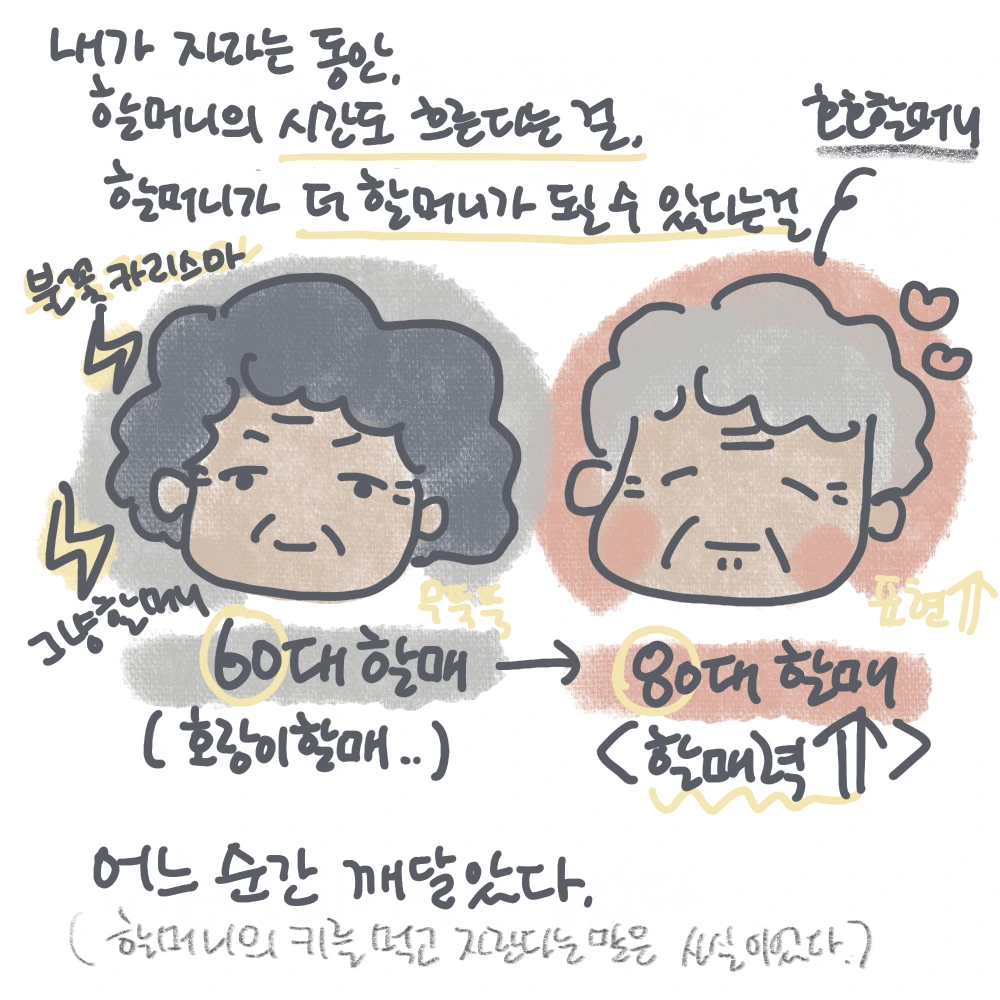 내가 자라는 동안,
할머니의 시간도 흐른다는 걸,
할머니가 더 할머니가 될 수 있다는걸
호호할머니
불꽃 카리스마
그냥할머니
무뚝뚝
표현⇑
60대 할매
→
80대 할매
(호랑이할매..)
<할매력⇑>
어느 순간 깨달았다.
(할머니의 키를 먹고 자란다는 말은 사실이었다.)